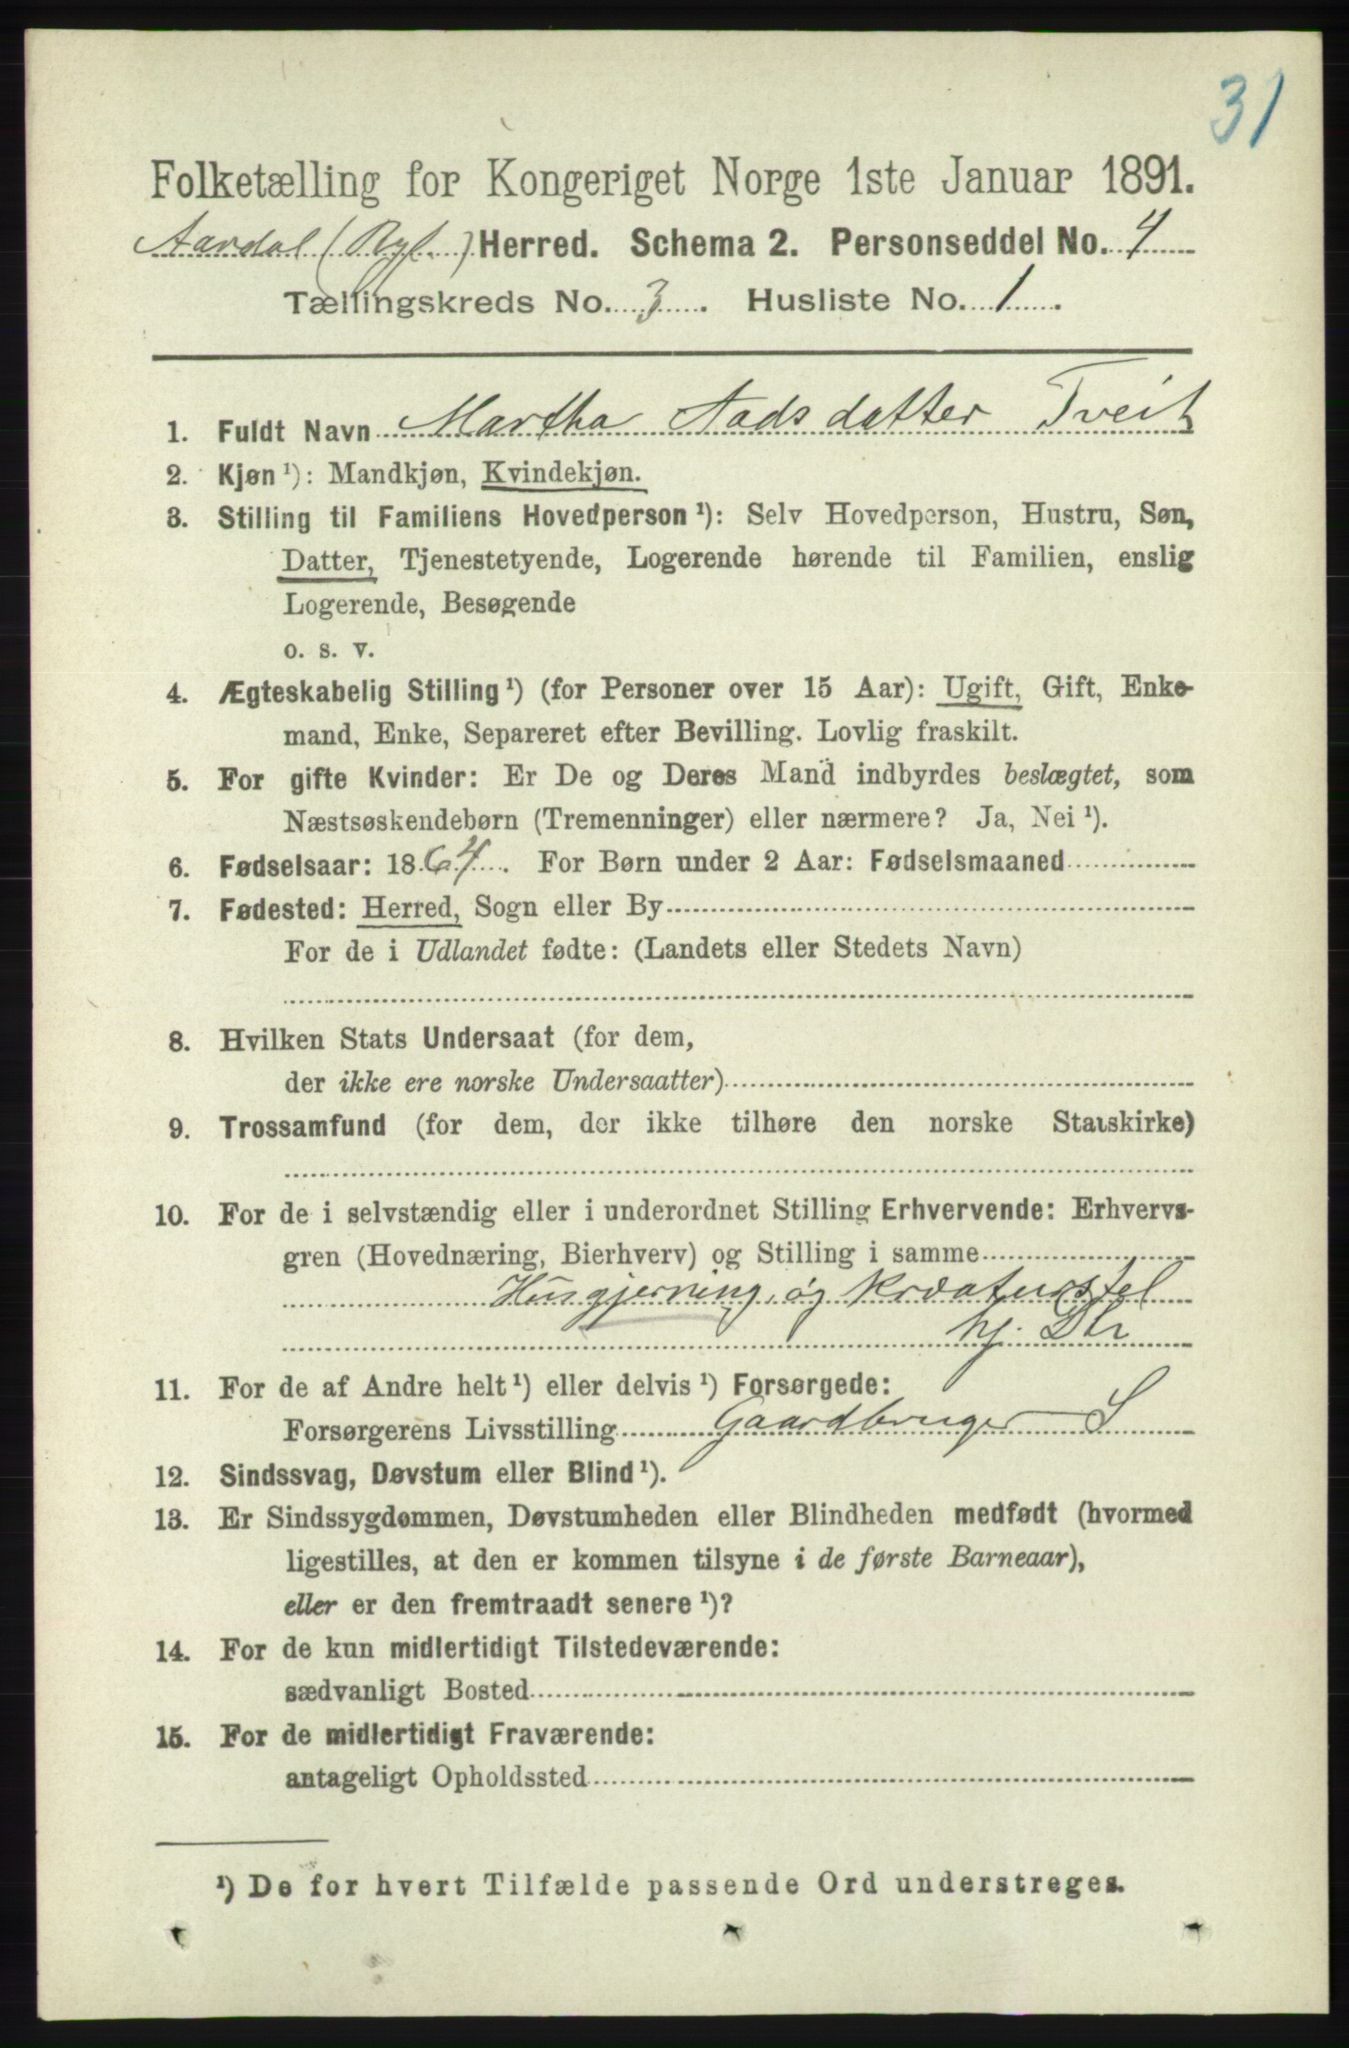 31
Folketælling for Kongeriget Norge 1ste Januar 1891.
Aardal (Ryf.) Herred. Schema 2. Personseddel No. 4
Tællingskreds No. 3. Husliste No. 1.
1. Fuldt Navn Martha Aadsdatter Tveit
2. Kjøn ¹): Mandkjøn, Kvindekjøn.
3. Stilling til Familiens Hovedperson ¹): Selv Hovedperson, Hustru, Søn,
Datter, Tjenestetyende, Logerende hørende til Familien, enslig
Logerende, Besøgende
o. s. v.
4. Ægteskabelig Stilling ¹) (for Personer over 15 Aar): Ugift, Gift, Enke-
mand, Enke, Separeret efter Bevilling. Lovlig fraskilt.
5. For gifte Kvinder: Er De og Deres Mand indbyrdes beslægtet, som
Næstsøskendebørn (Tremenninger) eller nærmere? Ja, Nei ¹).
6. Fødselsaar: 1864. For Børn under 2 Aar: Fødselsmaaned
7. Fødested: Herred, Sogn eller By
For de i Udlandet fødte: (Landets eller Stedets Navn)
8. Hvilken Stats Undersaat (for dem,
der ikke ere norske Undersaatter)
9. Trossamfund (for dem, der ikke tilhøre den norske Statskirke)
10. For de i selvstændig eller i underordnet Stilling Erhvervende: Erhvervs-
gren (Hovednæring, Bierhverv) og Stilling i samme
Husgjerning og Kreaturstel
hj.
11. For de af Andre helt ¹) eller delvis ¹) Forsørgede:
Forsørgerens Livsstilling Gaardbruger S
12. Sindssvag, Døvstum eller Blind ¹).
13. Er Sindssygdommen, Døvstumheden eller Blindheden medfødt (hvormed
ligestilles, at den er kommen tilsyne i de første Barneaar),
eller er den fremtraadt senere ¹)?
14. For de kun midlertidigt Tilstedeværende:
sædvanligt Bosted
15. For de midlertidigt Fraværende:
antageligt Opholdssted
¹) De for hvert Tilfælde passende Ord understreges.